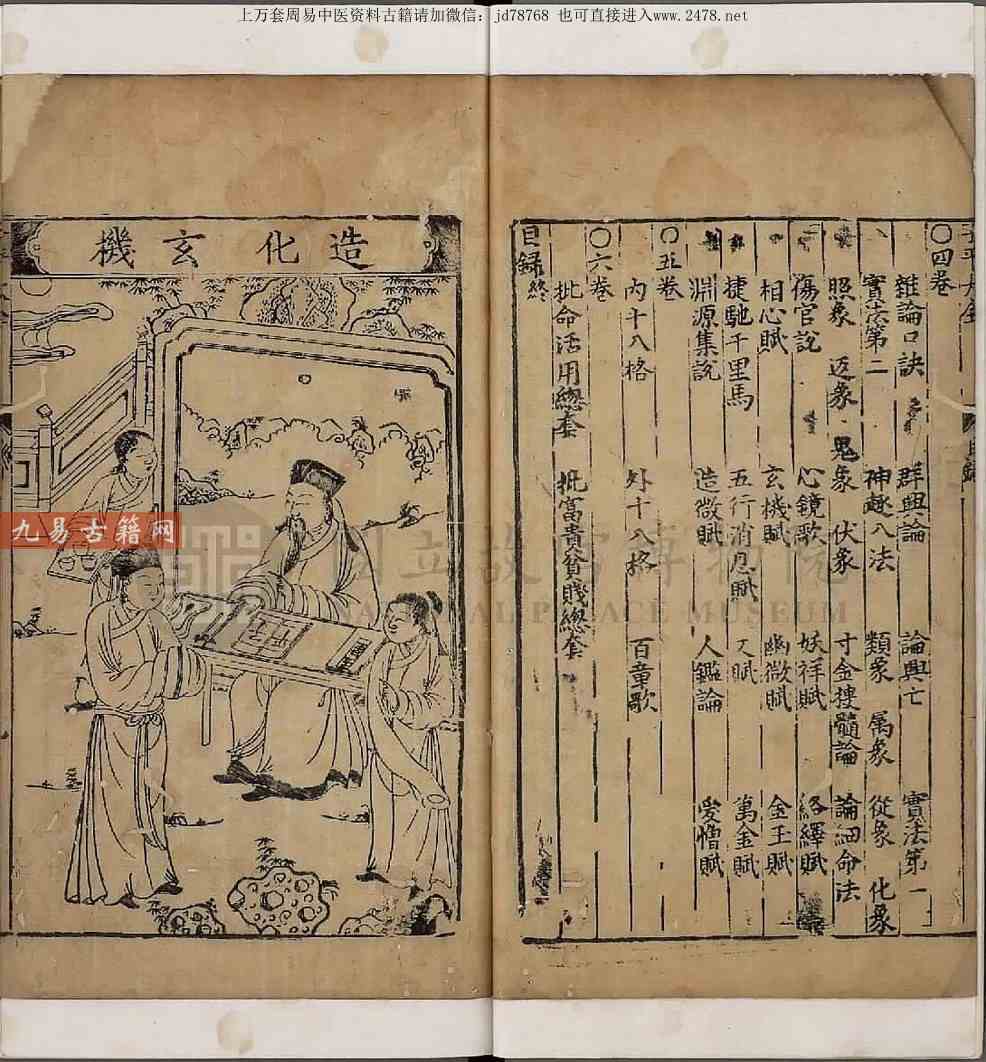 上万套周易中医资料古籍请加微信：jd78768 也可直接进入www.2478.net
〇四卷
雜論口訣 群興論 論興亡 寳法第一
寳法第二 神趣八法 類象 属象 從象 化象
照象 返象 鬼象 伏象 寸金搜髓論 論細命法
傷官說 心鏡歌 妖祥賦 絡繹賦
相心賦 玄機賦 幽微賦 金玉賦
捷馳千里馬 五行消息賦 又賦 萬金賦
淵源集說 造微賦 人鑑論 愛憎賦
〇五卷
內十八格 外十八格 百章歌
〇六卷
批命活用緫套 批富貴貧賤緫套
目録終
造化玄機
九易古籍网
國立故宮博物院
NATIONAL PALACE MUSEUM